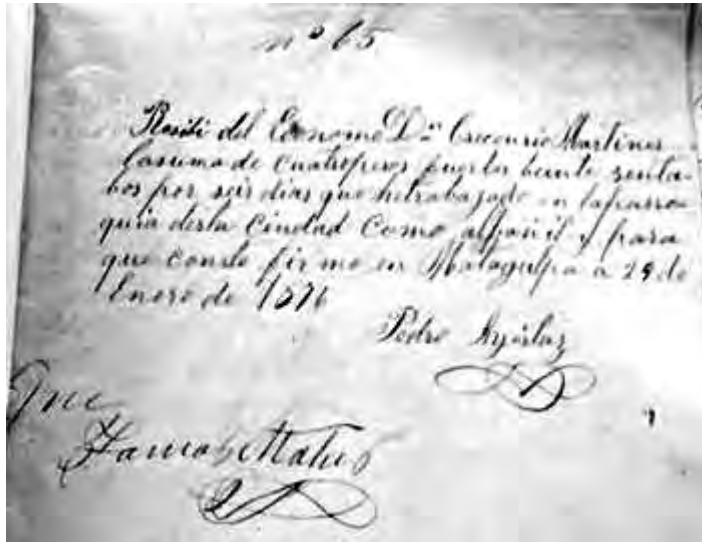 nº 65
Resibi del Economo Dn Grecorio Martines
la suma de cuatro pesos fuertes beinte senta-
bos por seis dias que he trabajado en la parro-
quia desta Ciudad Como alfanil y para
que conste firmo en Matagalpa a 29 de
Enero de 1876
Pedro